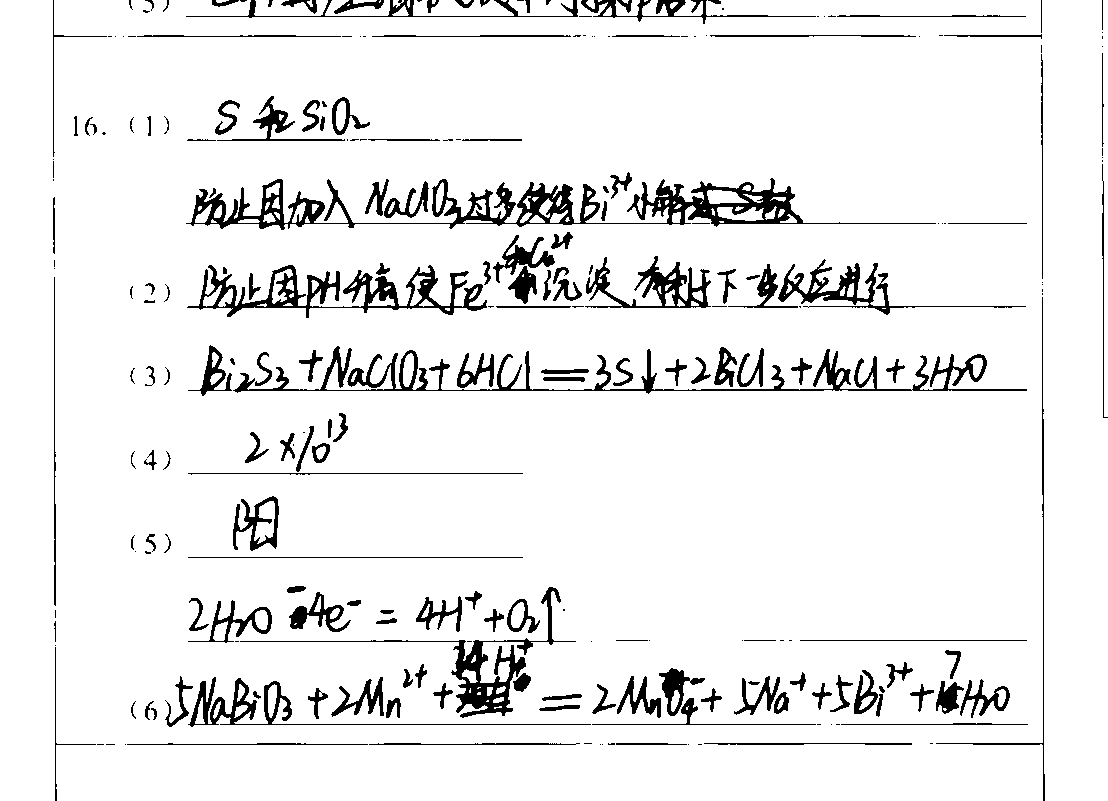 (5)
16. (1) S 和 SiO₂
防止因加入 NaClO₃过多使得Bi³⁺水解
(2) 防止因PH升高使Fe³⁺和Cu²⁺沉淀,有利于下一步反应进行
(3) Bi₂S₃+NaClO₃+6HCl=3S↓+2BiCl₃+NaCl+3H₂O
(4) 2×10¹³
(5) 阳
2H₂O-4e⁻=4H⁺+O₂↑
(6) 5NaBiO₃+2Mn²⁺+14H⁺=2MnO₄⁻+5Na⁺+5Bi³⁺+7H₂O